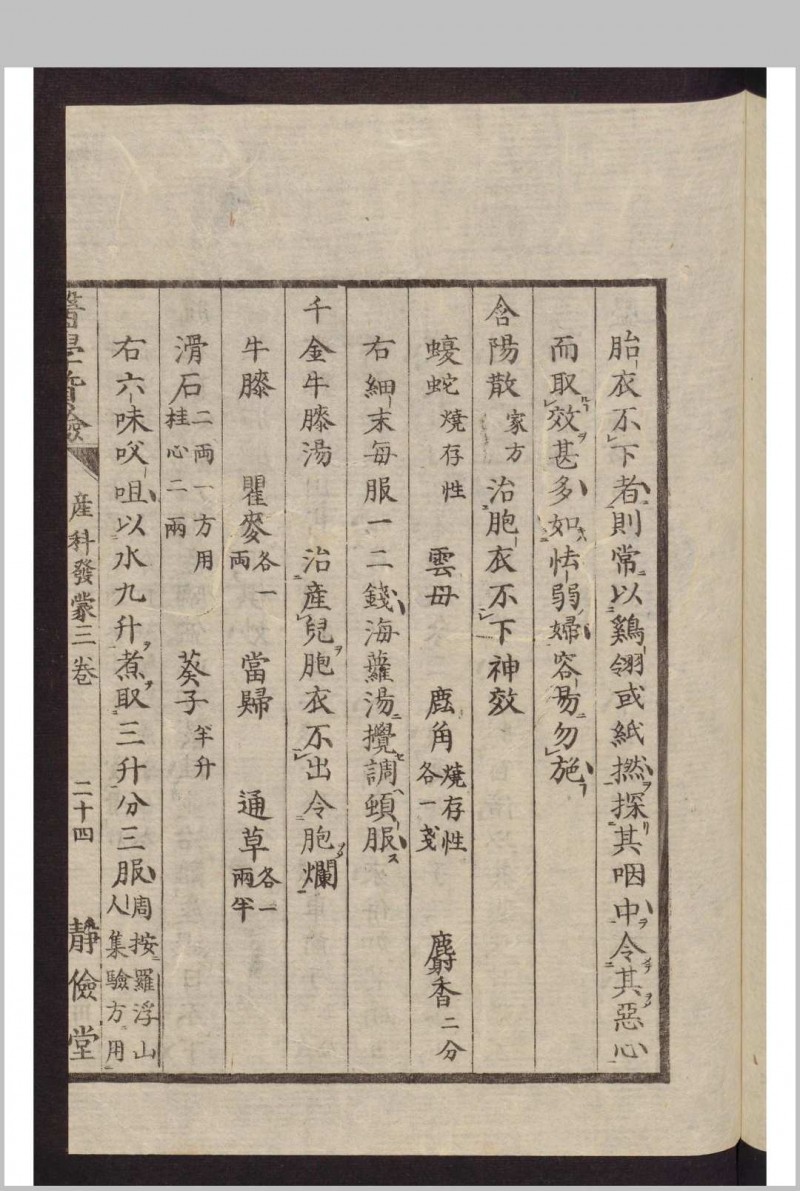 胎衣不下者則常以鷄翎或紙撚探其咽中令其惡心
而取效甚多如怯弱婦容易勿施
含陽散 家方 治胞衣不下神效
蝮蛇 燒存性 雲母 鹿角 燒存性各一戔 麝香 二分
右細末每服一二錢海蘿湯攪調頓服
千金牛膝湯 治產兒胞衣不出令胞爛
牛膝 瞿麥 各一兩 當歸 通草 各一兩半
滑石 二兩一方用桂心二兩 葵子 半升
右六味㕮咀以水九升煮取三升分三服 按羅浮山人集驗方用
醫學質驗 產科發蒙三卷 二十四 靜儉堂